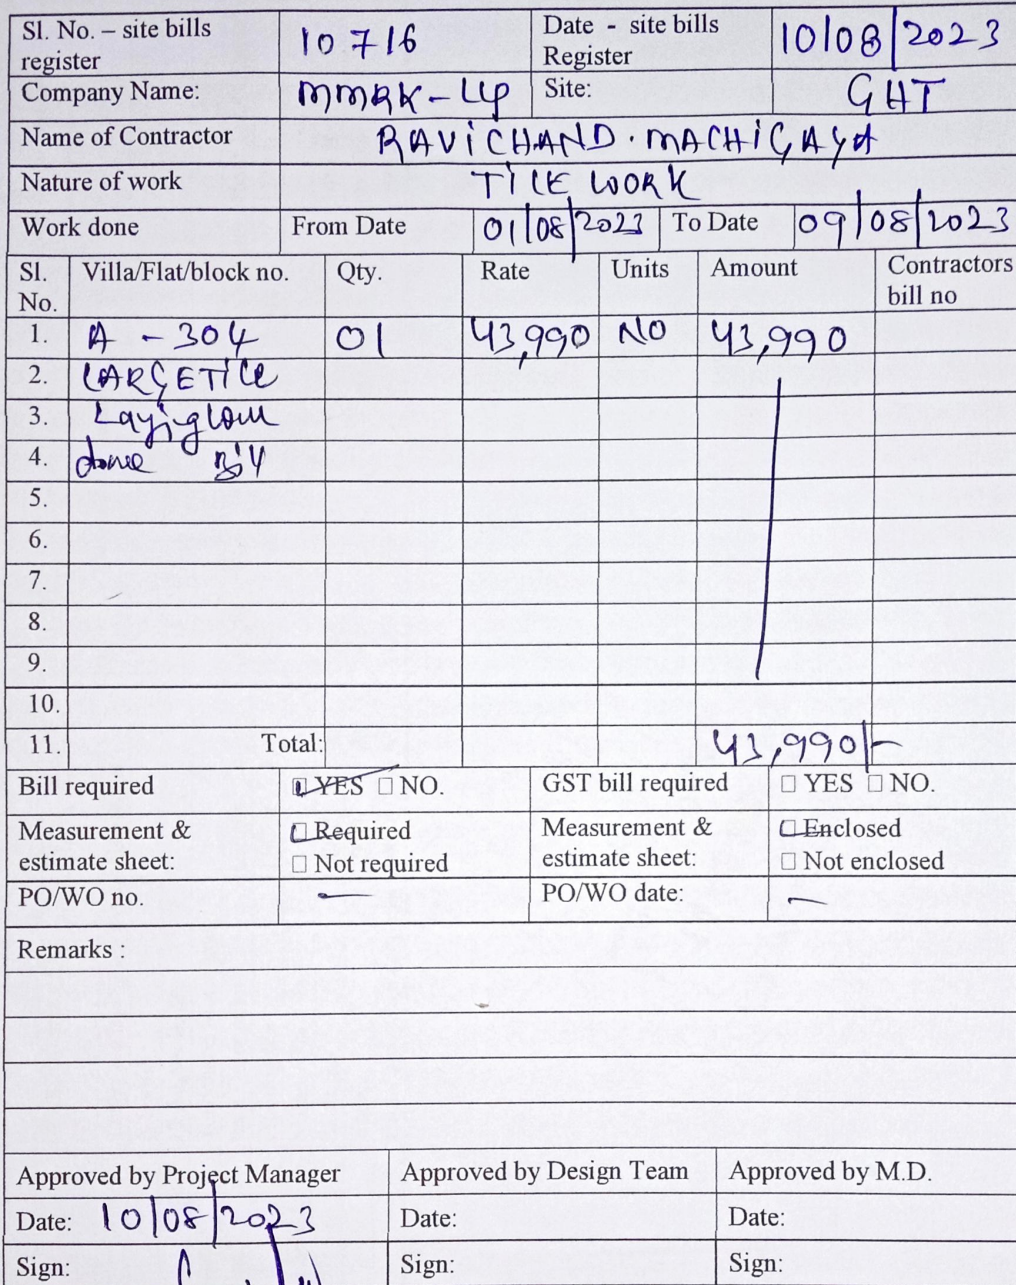 Sl. No. – site bills register 10716 Date - site bills Register 10/08/2023
Company Name: MMRK-LLP Site: GHT
Name of Contractor RAVICHAND.MACHIGAYA
Nature of work TILE WORK
Work done From Date 01/08/2023 To Date 09/08/2023
Sl. No. Villa/Flat/block no. Qty. Rate Units Amount Contractors bill no
1. A - 304 01 43,990 NO 43,990
2. LARGE TILE
3.
4. done
5.
6.
7.
8.
9.
10.
11. Total: 43,990/-
Bill required YES NO. GST bill required YES NO.
Measurement & estimate sheet: Required Not required Measurement & estimate sheet: Enclosed Not enclosed
PO/WO no. - PO/WO date: -
Remarks :
Approved by Project Manager Approved by Design Team Approved by M.D.
Date: 10/08/2023 Date: Date:
Sign: Sign: Sign: